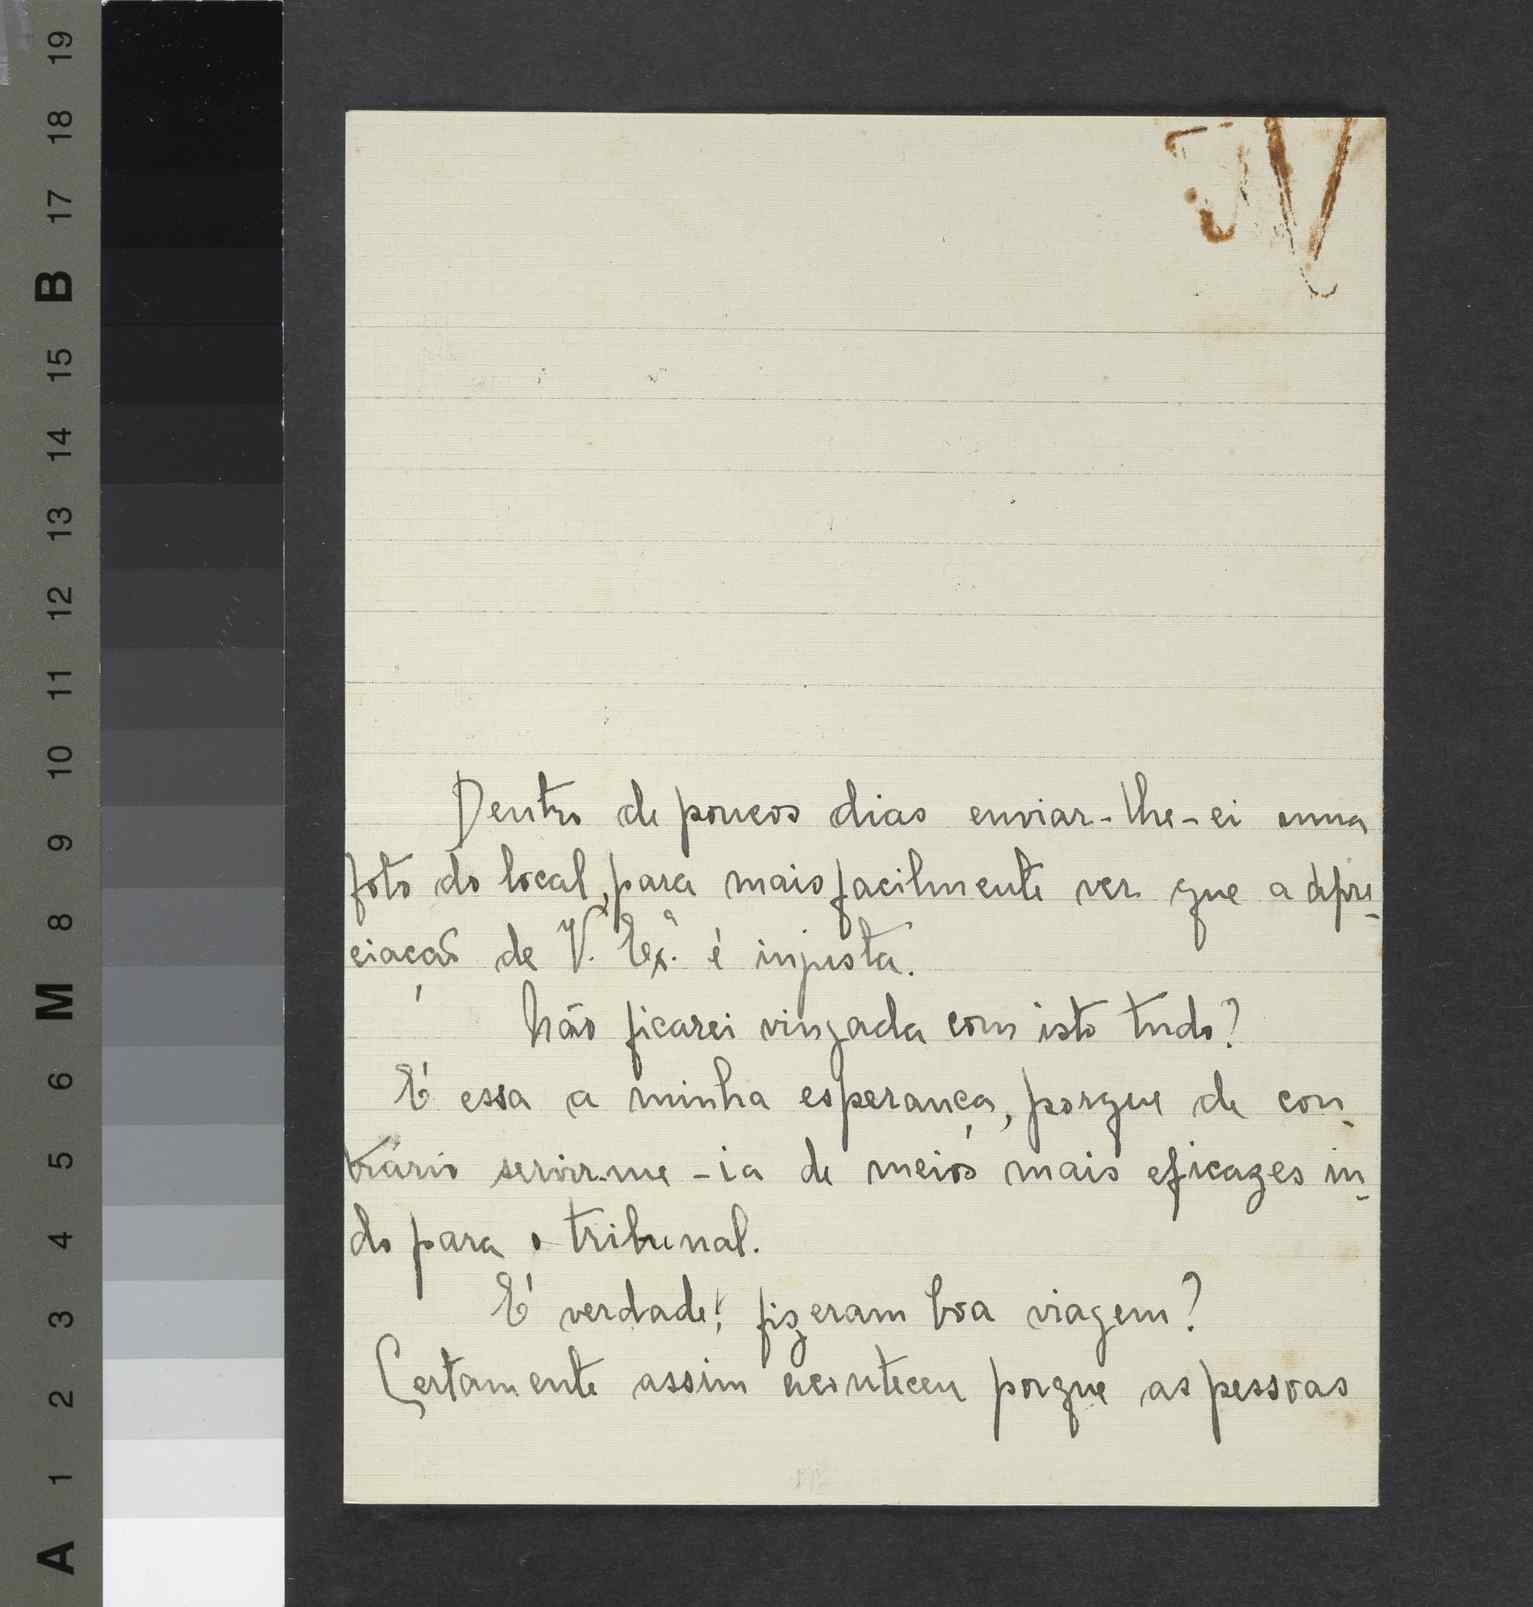 19
18
17
B
15
14
13
12
11
10
9
8
M
6
5
4
3
2
1
A
Dentro de poucos dias enviar-lhe-ei uma
foto do local, para mais facilmente ver que a apre-
ciação de V. Exª. é injusta.
Não ficarei vingada com isto tudo?
É essa a minha esperança, porque de con-
trário servir-me-ia de meios mais eficazes in-
do para o tribunal.
É verdade! fizeram boa viagem?
Certamente assim aconteceu porque as pessoas